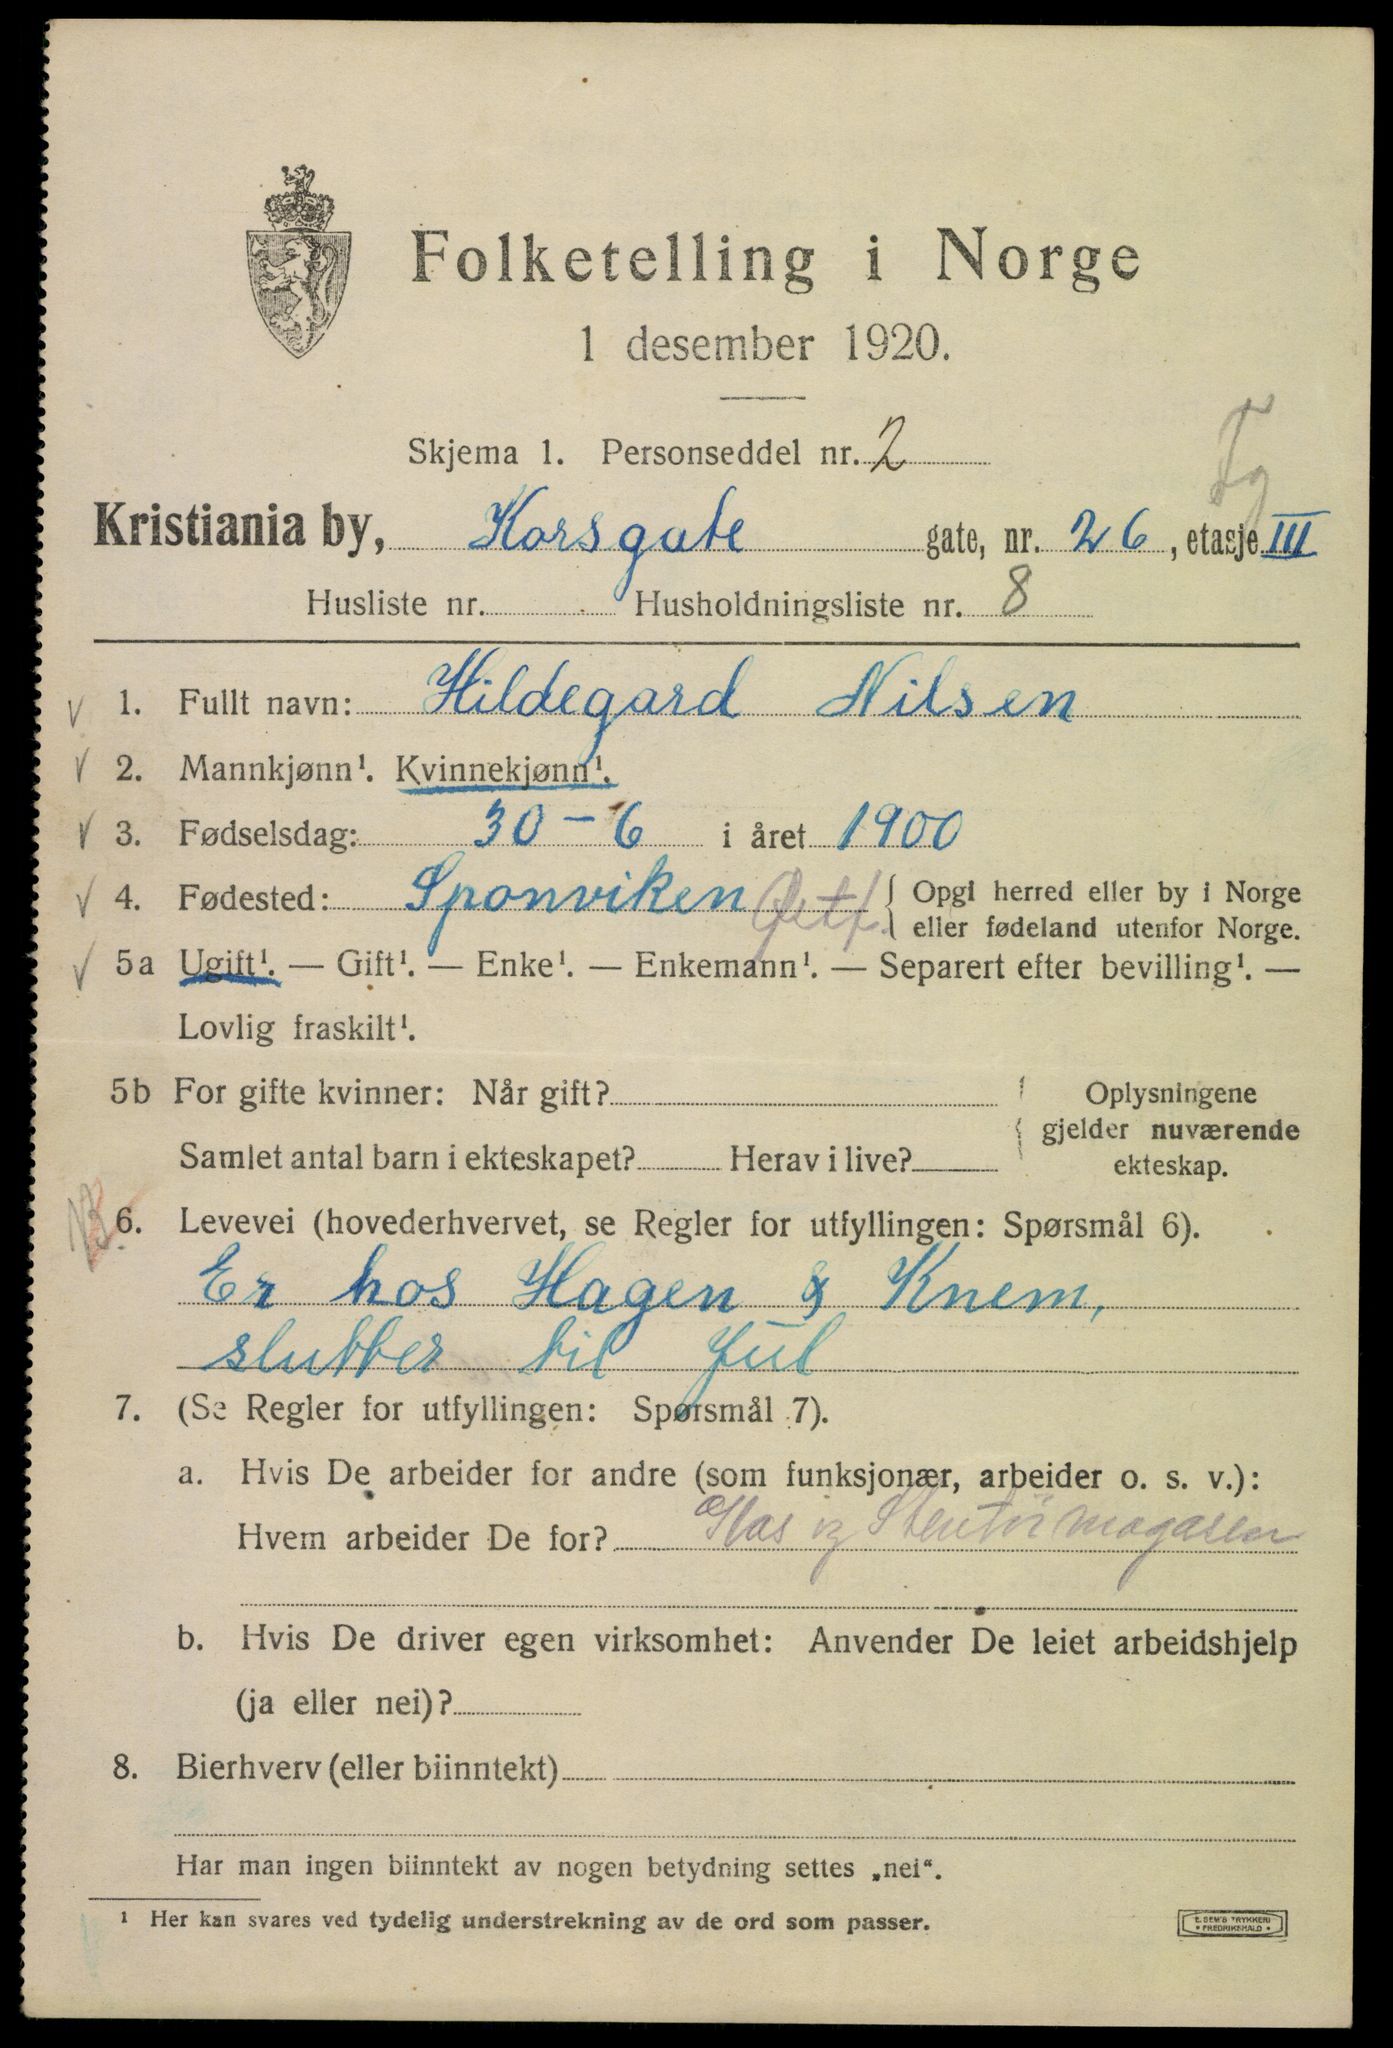 Folketelling i Norge
1 desember 1920.
Skjema 1. Personseddel nr. 2
Kristiania by, Korsgate gate, nr. 26, etasje III
Husliste nr. Husholdningsliste nr. 8
1. Fullt navn: Hildegard Nilsen
2. Mannkjønn¹. Kvinnekjønn¹.
3. Fødselsdag: 30-6 i året 1900
4. Fødested: Sponviken { Opgi herred eller by i Norge
eller fødeland utenfor Norge.
5a Ugift¹. — Gift¹. — Enke¹. — Enkemann¹. — Separert efter bevilling¹. —
Lovlig fraskilt¹.
5b For gifte kvinner: Når gift? { Oplysningene
gjelder nuværende
Samlet antal barn i ekteskapet? Herav i live? ekteskap.
NB 6. Levevei (hovederhvervet, se Regler for utfyllingen: Spørsmål 6).
Er hos Hagen & Knem,
slutter til Jul
7. (Se Regler for utfyllingen: Spørsmål 7).
a. Hvis De arbeider for andre (som funksjonær, arbeider o. s. v.):
Hvem arbeider De for? Glas og Stentöimagasen
b. Hvis De driver egen virksomhet: Anvender De leiet arbeidshjelp
(ja eller nei)?
8. Bierhverv (eller biinntekt)
Har man ingen biinntekt av nogen betydning settes „nei“.
¹ Her kan svares ved tydelig understrekning av de ord som passer.
E. SEM'S TRYKKERI
• FREDRIKSHALD •